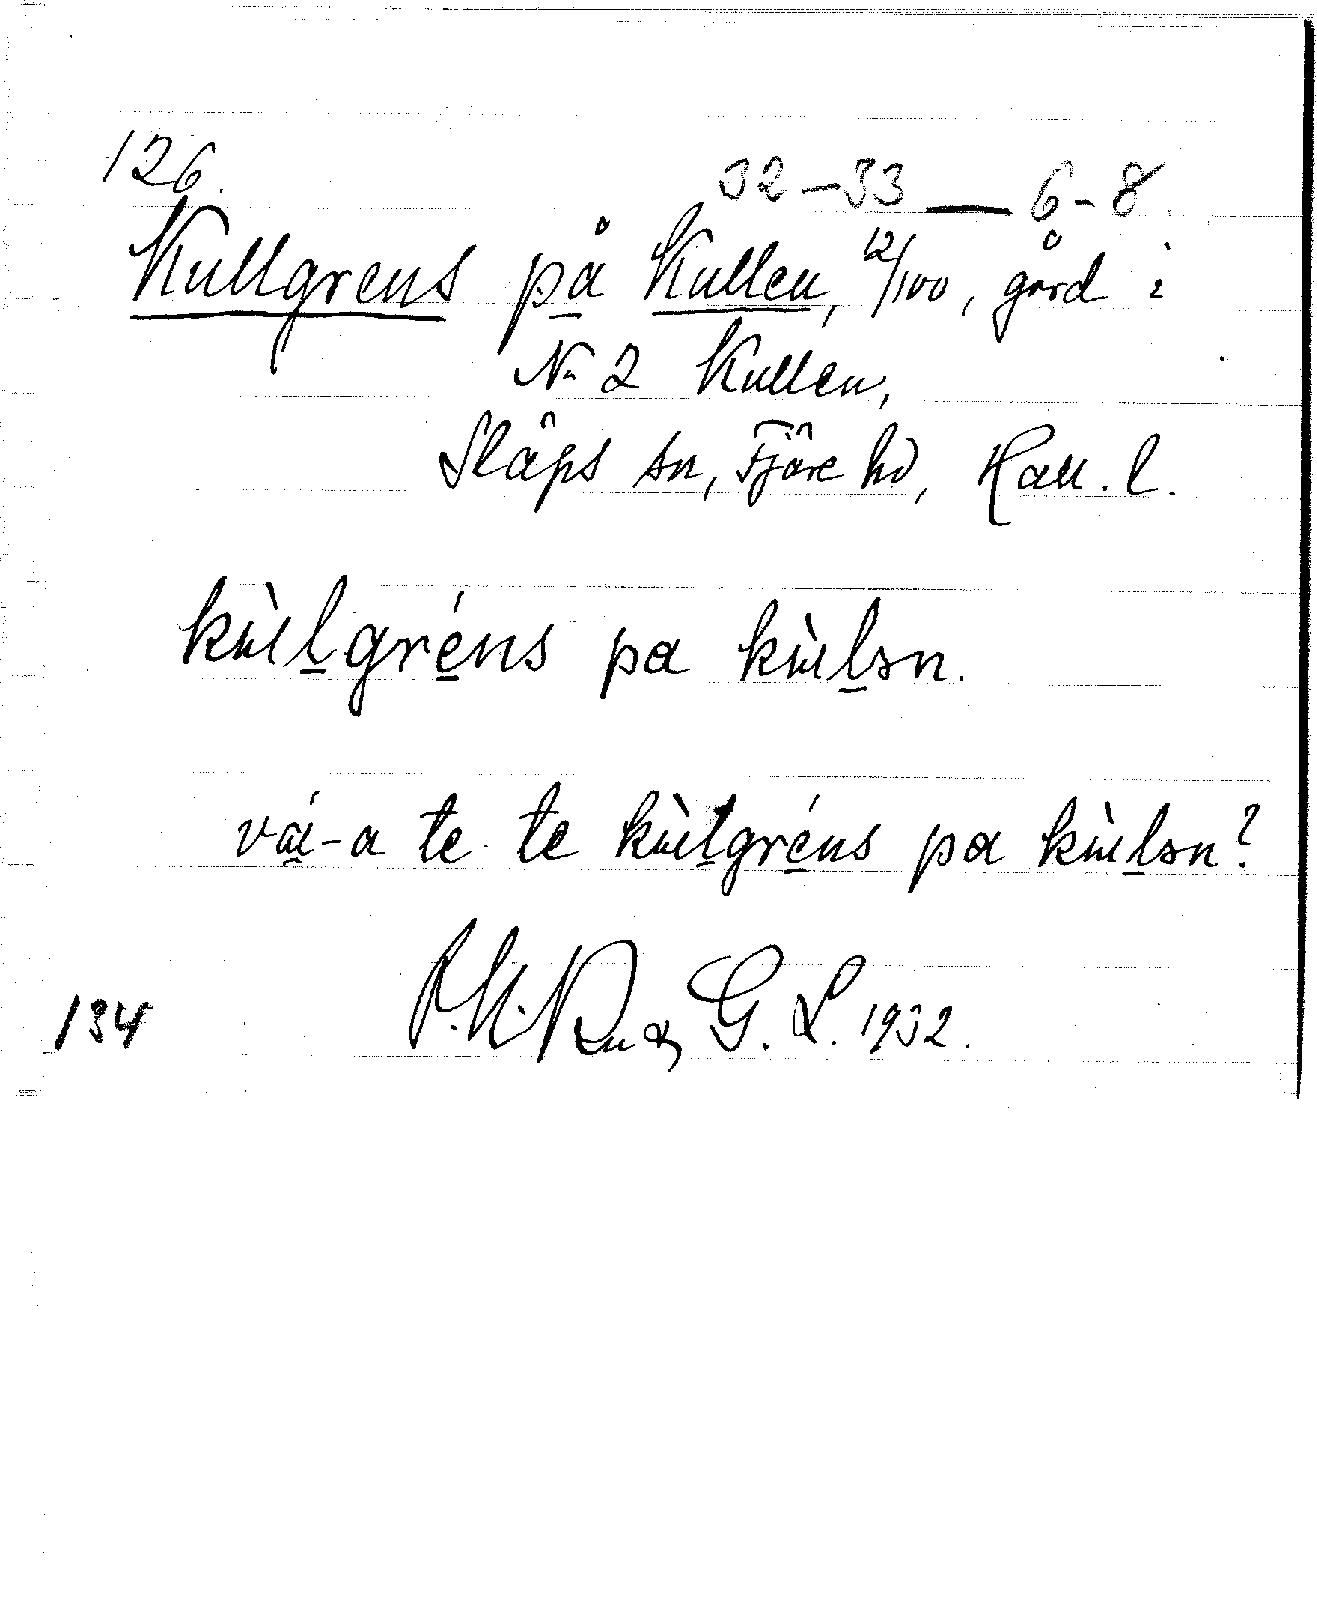 126.
32–33 — 6–8.
Kullgrens på Kullen, 12/100, gård i
Nr 2 Kullen,
Släps sn, Fjäre hd, Hall. l.
kùl̠gré̠ns pa kùl̠ən.
vá̠-a te te kùl̠gré̠ns pa kùl̠ən?
G. L. 1932.
134